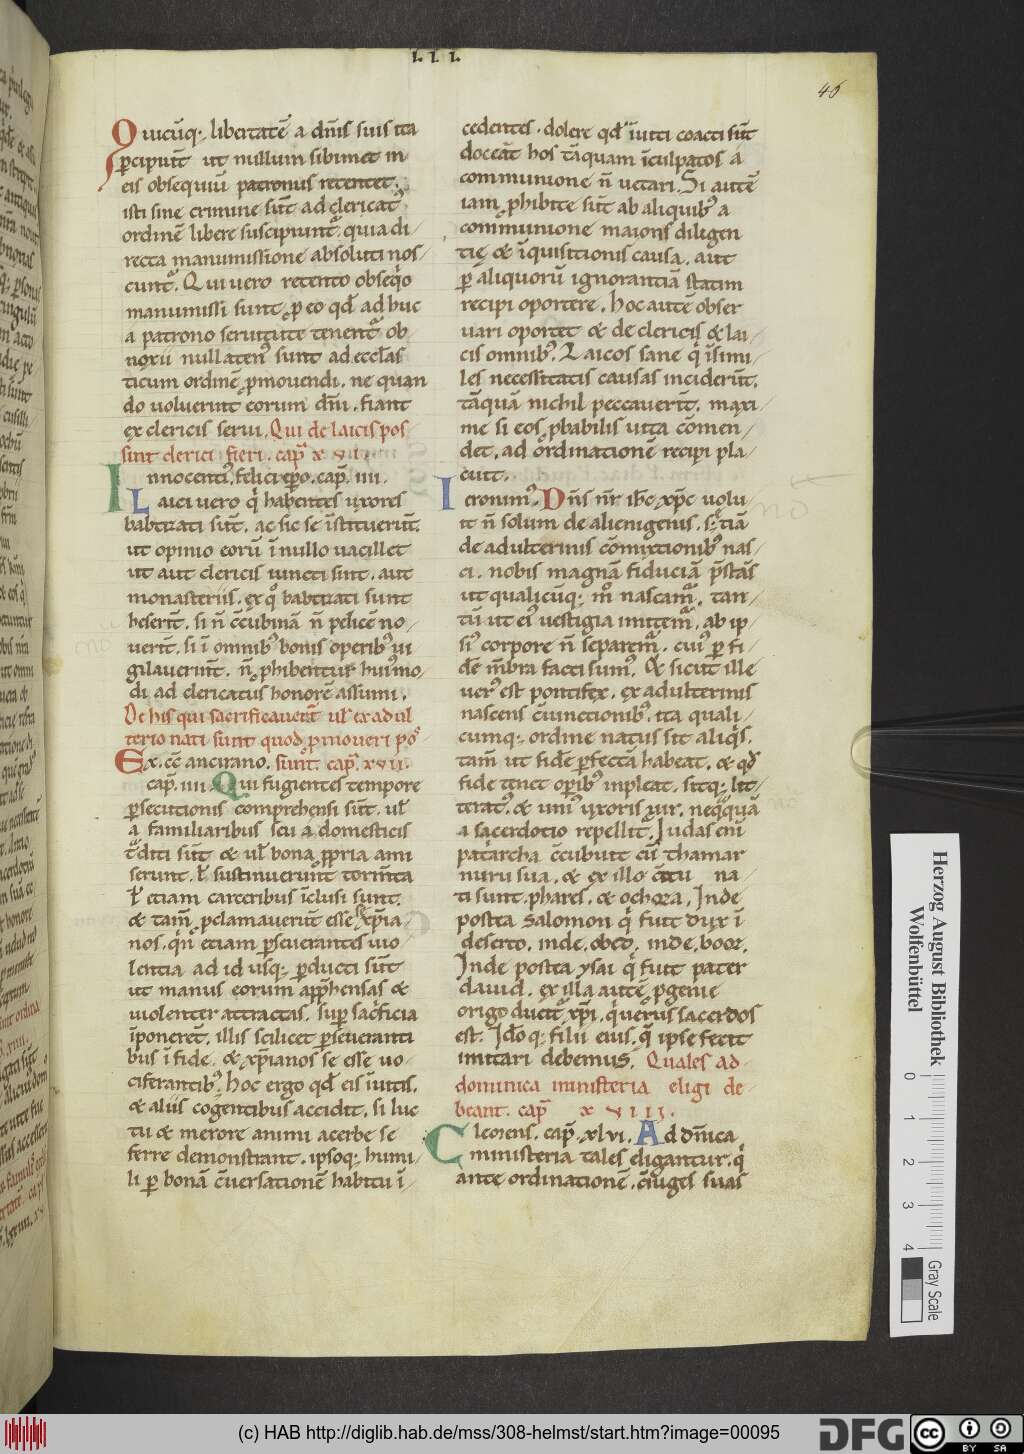 .I.I.I.
46
Quicūq; libertatē a dn̄is suis ita
ꝑcipiunt̄ ut nullum sibimet in
eis obsequiū patronus retentet;
isti sine crimine sūt ad clericat᷒
ordinē libere suscipiunt᷑, quia di/
recta manumissione absoluti nos/
cunt᷑. Qui uero retento obseq̇o
manumissi sunt, ꝓ eo qd̄ ad huc
a patrono seruitute tenent᷑ ob/
noxii nullaten᷒ sunt ad eccl̄as/
ticum ordinē ꝓmouendi. ne quan
do uoluerint eorum dn̄i. fiant
ex clericis serui. Qui de laicis pos
sint clerici fieri. cap̄ xvi.
Innocenti᷒ felici ep̄o. cap̄. iiii.
Laici uero q̇ habentes uxores
babtizati sūt. ac sic se īstituerūt
ut opinio eorū ī nullo uacillet
ut aut clericis iuncti sint. aut
monasteriis. ex q̊ babtizati sunt
heserīt. si n̄ c̄cubinā n̄ pelicē no/
uerīt. si ī omnib᷒ bonis operib᷒ ui
gilauerint. n̄ ꝓhibentur hui᷒mo/
di ad clericatus honorē assumi.
De his qui sacrificauerūt ul̄ ex adul
terio nati sunt quod ꝓmoueri po᷒
Ex. cc̄ ancirano. sunt. cap̄. xvii.
cap̄. iiii. Qui fugientes tempore
ꝑsecutionis comprehensi sūt. ul̄
a familiaribus seu a domesticis
tᷓditi sūt & ul̄ bona ꝓpria ami
serunt. ł sustinuerunt torm̄ta
ł etiam carceribus īclusi sunt.
& tam̄ ꝓclamauerūt esse se xp̄ia
nos. q̇n etiam ꝑseuerantes uio/
lentia ad id usq; ꝑducti sūt
ut manus eorum app̄hensas &
uiolenter attractas, suꝑ sac̊ficia
īponerent̄, illis scilicet ꝑseueranti
bus ī fide, & xp̄ianos se esse uo/
ciferantib᷒. hoc ergo qd̄ eis īuitis.
& aliis cogentibus accidit. si luc
tu & merore animi acerbe se
ferre demonstrant. ipsoq; humi/
li ꝑ bonā c̄uersationē habitu ī/
cedentes. dolere qd̄ īuiti coacti sūt
doceāt hos tāquam īculpatos a
communione n̄ uetari. Si autē
iam ꝓhibite sūt ab aliquib᷒ a
communione maioris diligen
tię & īquisitionis causa. aut
ꝑ aliquorū ignorantiā statim
recipi oportere. hoc autē obser
uari oportet & de clericis & lai/
cis omnib᷒. Laicos sane q̇ īsimi/
les necessitatis causas inciderīt.
tāquā nichil peccauerīt. maxi/
me si eos ꝓbabilis uita cōmen/
det. ad ordinationē recipi pla/
cuit.
Ieronim᷒. Dn̄s nr̄ ih̄c xp̄c uolu/
it n̄ solum de alienigenis. s; etiā
de adulterinis cōmixtionib᷒ nas/
ci. nobis magnā fiduciā p̄stās
ut qualicūq; m̊ nascam᷑, tan/
tū ut ei᷒ uestigia imitem᷑, ab ip/
si᷒ corpore n̄ separem᷑. cui᷒ ꝑ fi/
dē mēbra facti sum᷒. & sicut ille
uer᷒ est pontifex. ex adulterinis
nascens c̄iunctionib᷒. ita quali/
cumq; ordine natus sit aliq̇s.
tam̄ ut fidē ꝑfectā habeat. & qd̄
fide tenet oꝑib᷒ inpleat. sitq; lit/
terat᷒. & uni᷒ uxoris uir. neq̊quā
a sacerdotio repellit᷑. Judas enī
pat̊archa c̄cubuit cū thamar
nuru sua. & ex illo c̄itu na/
ti sunt. phares. & oc hora. Inde
postea salomon q̇ fuit dux ī
deserto. inde. obed. inde. booz.
Inde postea ysai q̇ fuit pater
dauid. ex illa autē ꝓgenie
origo ducit᷑ xp̄i. q̇ uerus sacerdos
est. Id̊o q; filii eius. q̄ ipse fecit
imitari debemus. Quales ad/
dominica ministeria eligi de/
beant. cap̄ xviii.
Clemens. cap̄. xlvi. Ad dn̄ica
ministeria tales eligantur. q̇
ante ordinationē. c̄iuges suas
Herzog August Bibliothek
Wolfenbüttel
0 1 2 3 4
Gray Scale
(c) HAB http://diglib.hab.de/mss/308-helmst/start.htm?image=00095
DFG
cc
BY SA